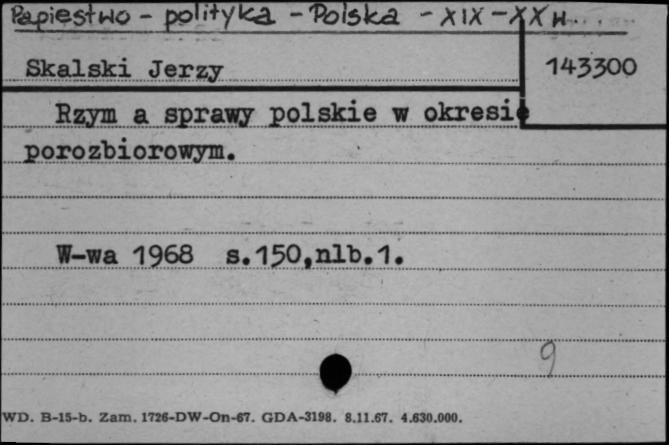 Papiestwo - polityka - Polska - XIX-XX w.
Skalski Jerzy
143300
Rzym a sprawy polskie w okresie
porozbiorowym.
W-wa 1968 s.150,nlb.1.
9
WD. B-15-b. Zam. 1726-DW-On-67. GDA-3198. 8.11.67. 4.630.000.